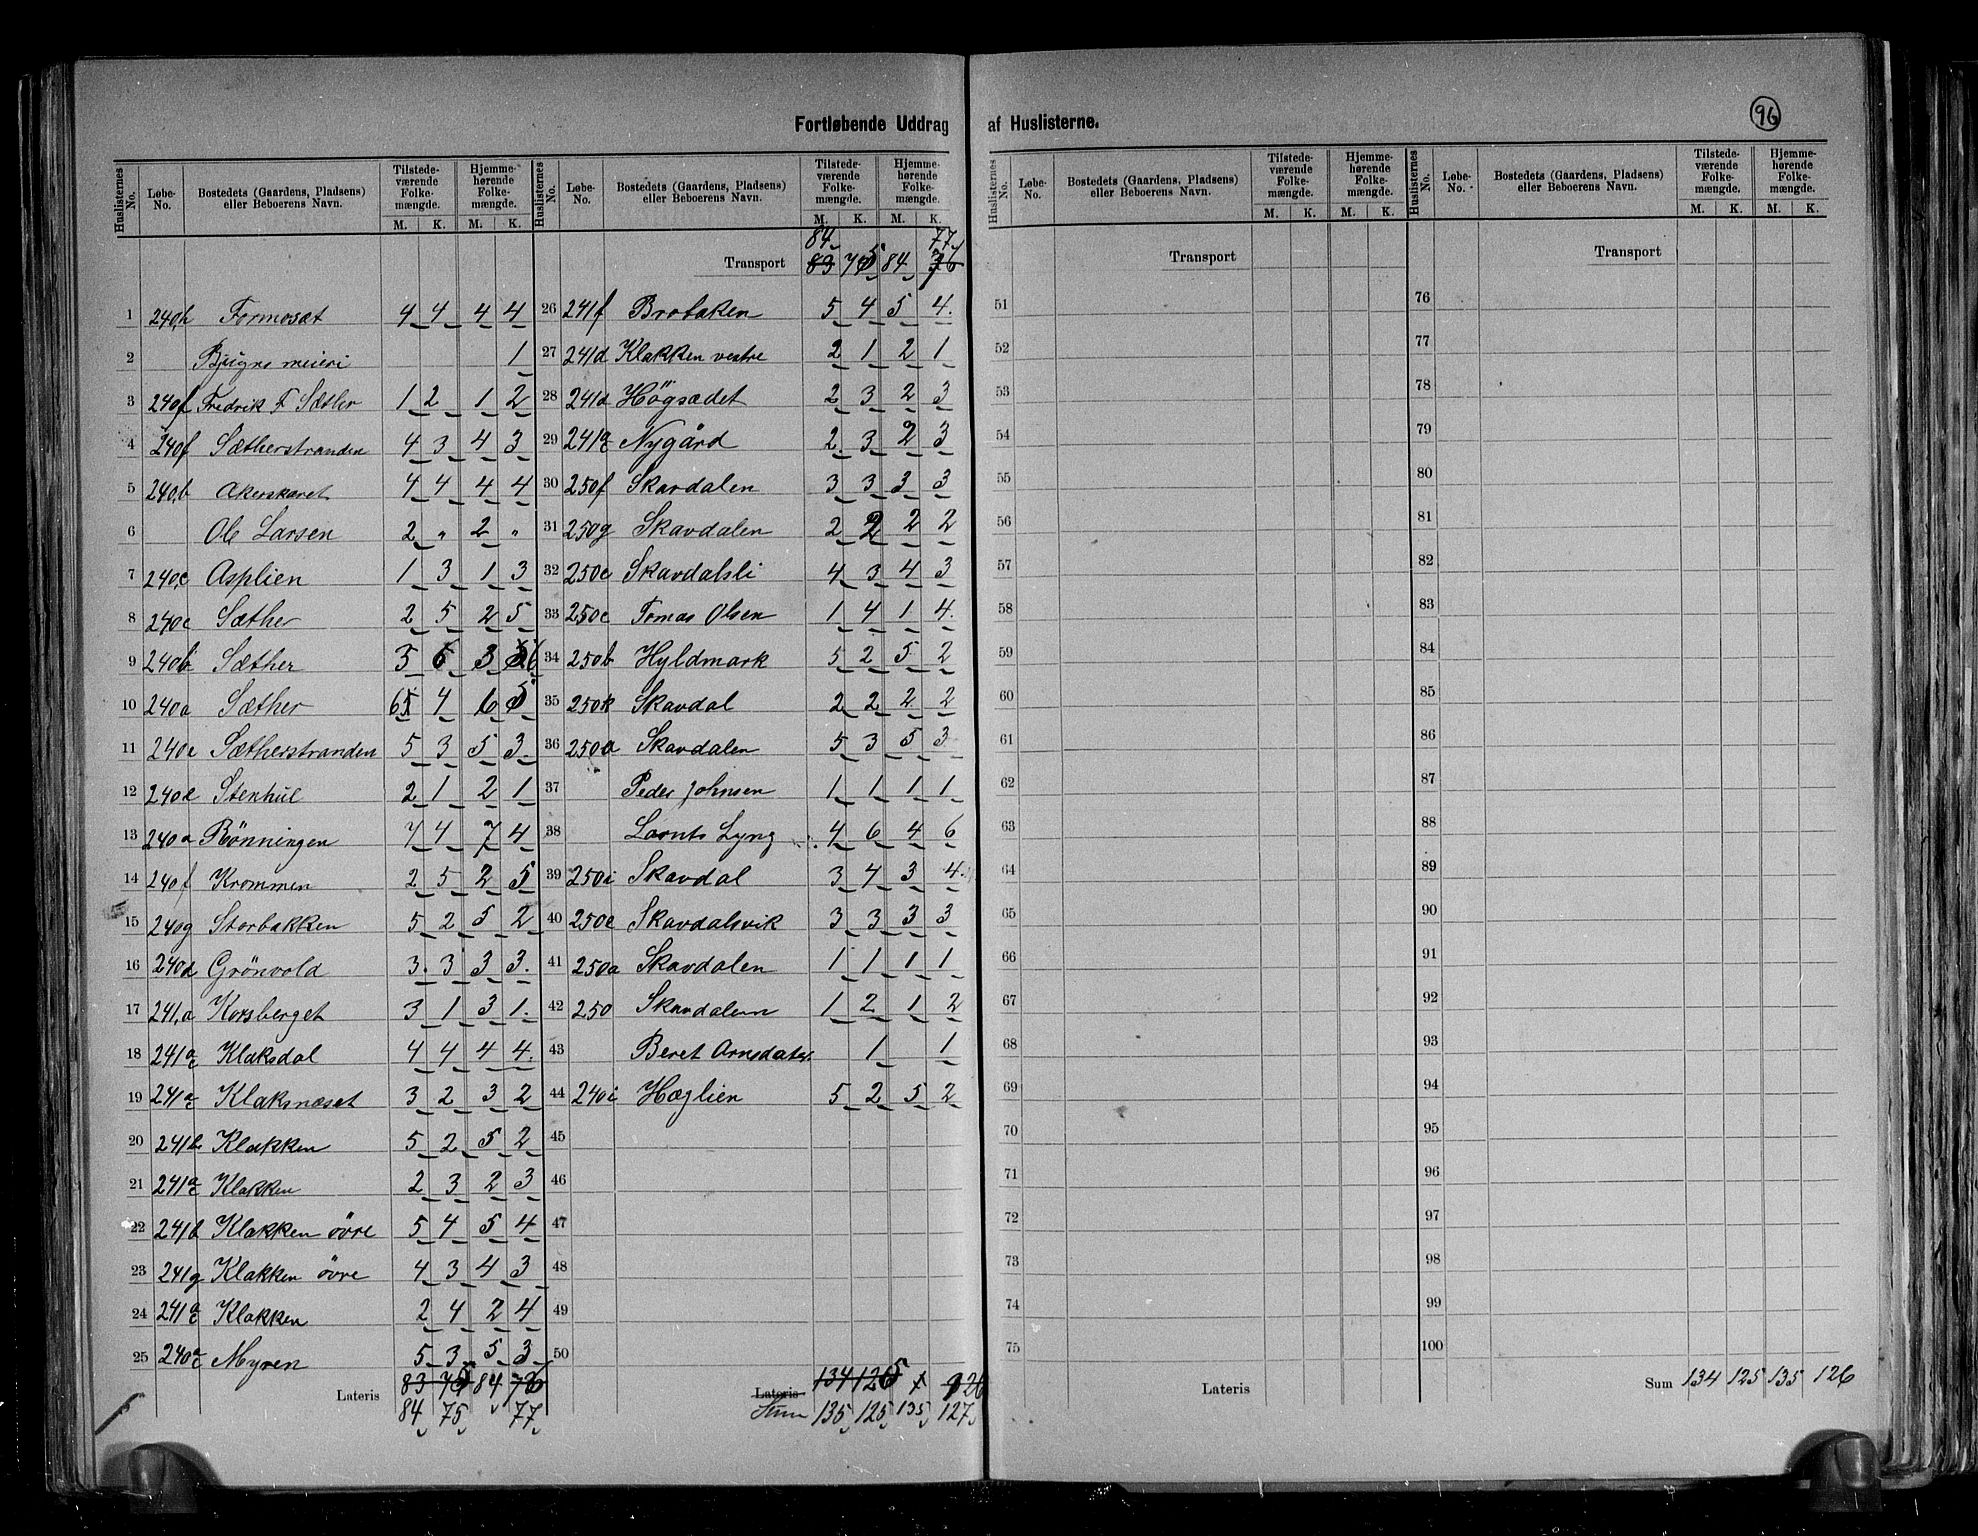 Fortløbende Uddrag af Huslisterne.
96
Huslisternes No. | Løbe-No. | Bostedets (Gaardens, Pladsens) eller Beboerens Navn. | Tilstedeværende Folkemængde. M. K. | Hjemmehørende Folkemængde. M. K.
1 240h Formosæt 4 4 4 4
2 Bjugns meieri 1
3 240f Fredrik F Sæther 1 2 1 2
4 240f Sætherstranden 4 3 4 3
5 240b Akerskaret 4 4 4 4
6 Ole Larsen 2 " 2 "
7 240c Asplien 1 3 1 3
8 240c Sæther 2 5 2 5
9 240b Sæther 3 6 3 6
10 240a Sæther 6 4 6 5
11 240e Sætherstranden 5 3 5 3
12 240e Stenhul 2 1 2 1
13 240a Rönningen 7 4 7 4
14 240f Krommen 2 5 2 5
15 240g Storbakken 5 2 5 2
16 240d Grönvold 3 3 3 3
17 241a Korsberget 3 1 3 1
18 241a c Klaksdal 4 4 4 4
19 241a c Klaksnæset 3 2 3 2
20 241b Klakken 5 2 5 2
21 241a c Klakken 2 3 2 3
22 241b Klakken övre 5 4 5 4
23 241g Klakken övre 4 3 4 3
24 241a c Klakken 2 4 2 4
25 240a c Myren 5 3 5 3
Lateris 83 75 84 76
84 75 77
Huslisternes No. | Løbe-No. | Bostedets (Gaardens, Pladsens) eller Beboerens Navn. | Tilstedeværende Folkemængde. M. K. | Hjemmehørende Folkemængde. M. K.
84 77
Transport 83 75 84 76
26 241f Brobakken 5 4 5 4
27 241d Klakken vestre 2 1 2 1
28 241d Högsædet 2 3 2 3
29 241a c Nygård 2 3 2 3
30 250f Skavdalen 3 3 3 3
31 250g Skavdalen 2 2 2 2
32 250c Skavdalsli 4 3 4 3
33 250c Tomas Olsen 1 4 1 4
34 250b Hyldmark 5 2 5 2
35 250k Skavdal 2 2 2 2
36 250a Skavdalen 5 3 5 3
37 Peder Johnsen 1 1 1 1
38 Lornts Lyng 4 6 4 6
39 250i Skavdal 3 4 3 4
40 250e Skavdalsvik 3 3 3 3
41 250a Skavdalen 1 1 1 1
42 250 Skavdalen 1 2 1 2
43 Beret Arnsdater 1 1
44 240i Hæglien 5 2 5 2
45
46
47
48
49
50
Lateris 134 125 126
Sum 135 125 135 127
Huslisternes No. | Løbe-No. | Bostedets (Gaardens, Pladsens) eller Beboerens Navn. | Tilstedeværende Folkemængde. M. K. | Hjemmehørende Folkemængde. M. K.
Transport
51
52
53
54
55
56
57
58
59
60
61
62
63
64
65
66
67
68
69
70
71
72
73
74
75
Lateris
Huslisternes No. | Løbe-No. | Bostedets (Gaardens, Pladsens) eller Beboerens Navn. | Tilstedeværende Folkemængde. M. K. | Hjemmehørende Folkemængde. M. K.
Transport
76
77
78
79
80
81
82
83
84
85
86
87
88
89
90
91
92
93
94
95
96
97
98
99
100
Sum 134 125 135 126